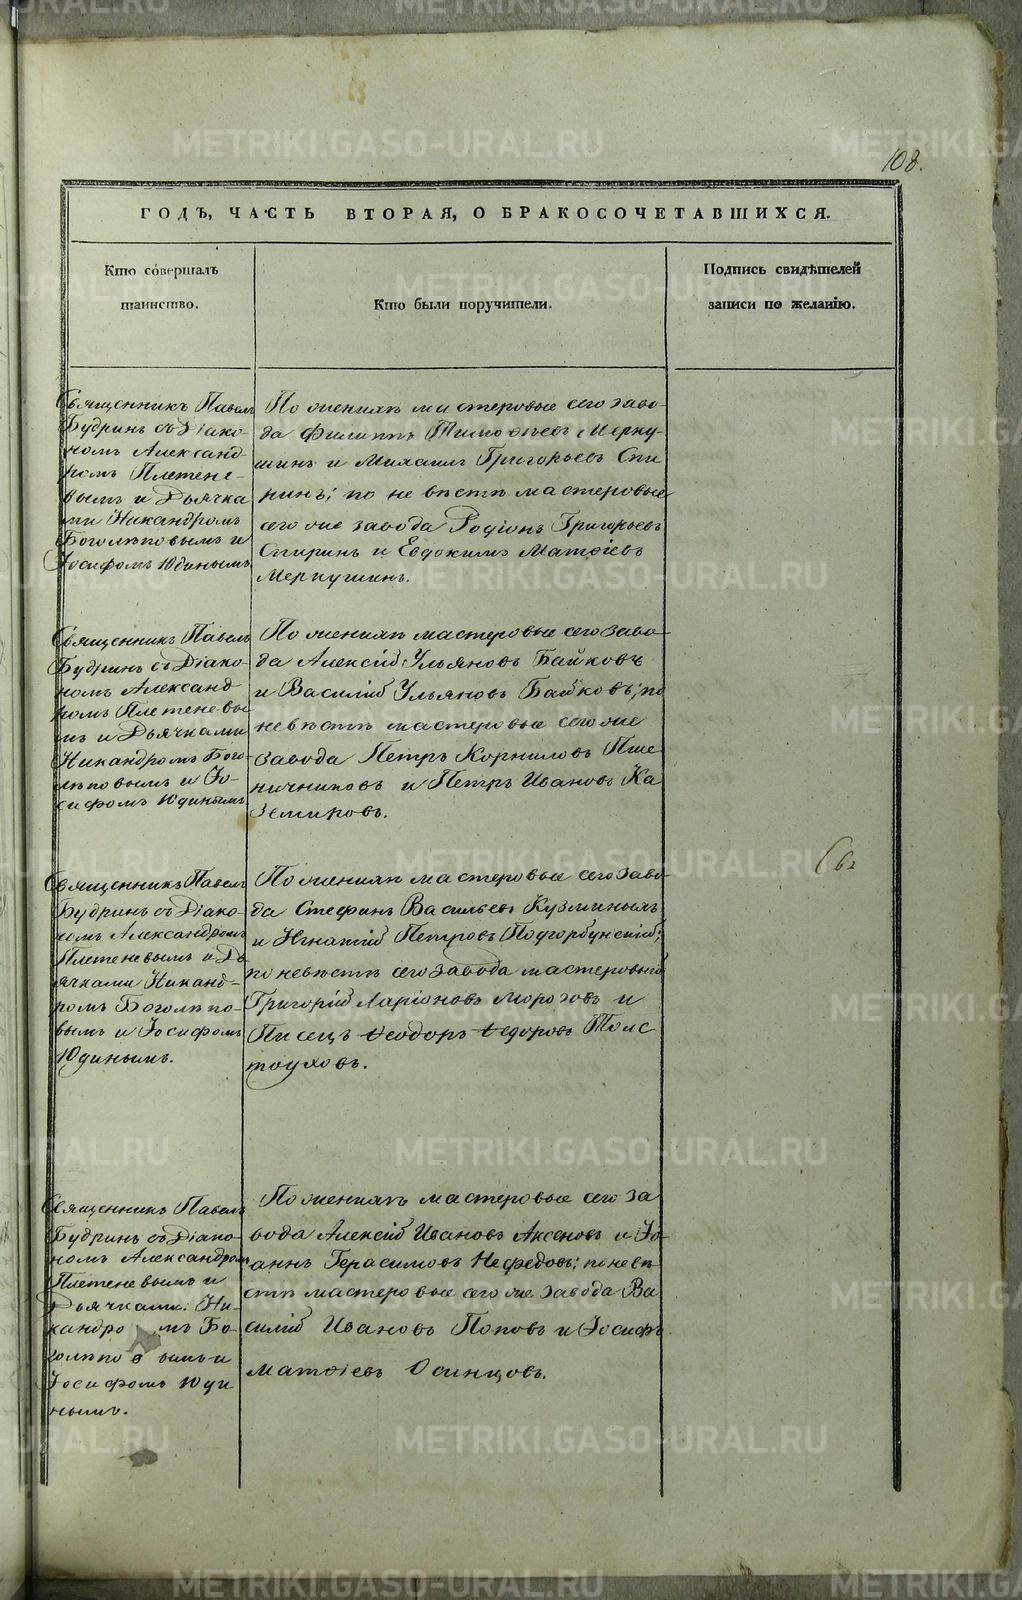 108.
ГОДЪ, ЧАСТЬ ВТОРАЯ, О БРАКОСОЧЕТАВШИХСЯ.
Кто совершалъ
таинство.
Кто были поручители.
Подпись свидѣтелей
записи по желанію.
Священникъ Павелъ
Будринъ съ Діако-
номъ Александ-
ромъ Плетене-
вымъ и Дьячка
ми Никандромъ
Боголѣповымъ и
Іосифомъ Юдинымъ
По женихѣ мастеровые сего заво-
да Филиппъ Тимоѳѣевъ Мерку-
шинъ и Михаилъ Григорьевъ Спи
ринъ; по невѣстѣ мастеровые
сего же завода Родіонъ Григорьевъ
Спиринъ и Евдокимъ Матѳіевъ
Меркушинъ.
Священникъ Павелъ
Будринъ съ Діако-
номъ Александ
ромъ Плетеневы
мъ и Дьячками
Никандромъ Бого-
лѣповымъ и Іо-
сифомъ Юдинымъ
По женихѣ мастеровые сего заво-
да Алексій Ульяновъ Байковъ
и Василій Ульяновъ Байковъ; по
невѣстѣ мастеровые сего же
завода Петръ Корниловъ Пше
ничниковъ и Петръ Ивановъ Ка
земировъ.
Священникъ Павелъ
Будринъ съ Діако-
номъ Александромъ
Плетеневымъ и Дь
ячками Никанд-
ромъ Боголѣпо-
вымъ и Іосифомъ
Юдинымъ.
По женихѣ мастеровые сего заво-
да Стефанъ Васильевъ Кузминыхъ
и Игнатій Петровъ Подгорбунскій;
по невѣстѣ сего завода мастеровый
Григорій Ларіоновъ Морозовъ и
Писецъ Ѳеодоръ Ѳедоровъ Толс
тоуховъ.
Съ
Священникъ Павелъ
Будринъ съ Діако-
номъ Александромъ
Плетеневымъ и
Дьячками: Ни-
кандромъ Бо-
голѣповымъ и
Іосифомъ Юди
нымъ.
По женихѣ мастеровые сего за
вода Алексій Ивановъ Аксеновъ и Іо-
аннъ Герасимовъ Нефедовъ; по невѣ-
стѣ мастеровые сего же завода Ва
силій Ивановъ Поповъ и Іосифъ
Матѳіевъ Осинцовъ.
METRIKI.GASO-URAL.RU